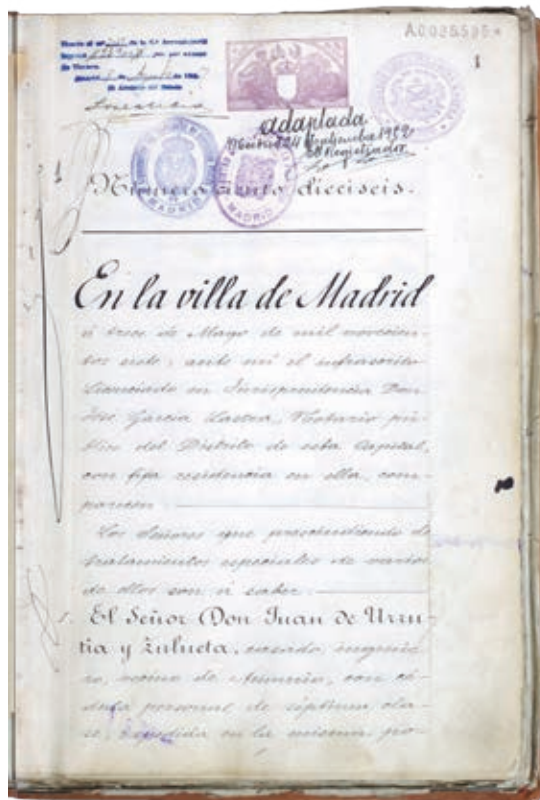 A0095595*
1
adaptada
Madrid 24 Septiembre 1952
El Registrador
MADRID
MADRID
Número ciento dieciseis.
En la villa de Madrid
á trece de Mayo de mil novecien-
tos siete, ante mí el infrascrito
Licenciado en Jurisprudencia Don
José García Lastra, Notario pú-
blico del Distrito de esta Capital,
con fija residencia en ella, com-
parecen
Los Señores que prescindiendo de
tratamientos especiales de varios
de ellos son á saber:
El Señor Don Juan de Urru-
tia y Zulueta, casado, ingenie-
ro, vecino de Amurrio, con cé-
dula personal de séptima cla-
se, expedida en la misma po-